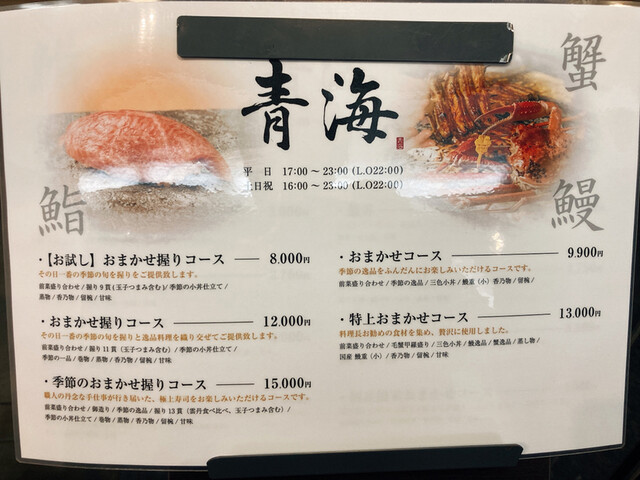 青海
蟹
鮨
鰻
平　日　17:00 ～ 23:00 (L.O22:00)
土日祝　16:00 ～ 23:00 (L.O22:00)
・【お試し】おまかせ握りコース　8.000円
その日一番の季節の旬を握りをご提供致します。
前菜盛り合わせ / 握り 9 貫 ( 玉子つまみ含む )/ 季節の小丼仕立て /
蒸物 / 香乃物 / 留椀 / 甘味
・おまかせ握りコース　12.000円
その日一番の季節の旬を握りと逸品料理を織り交ぜてご提供致します。
前菜盛り合わせ / 握り 11 貫（玉子つまみ含む）/ 季節の小丼仕立て /
季節の一品 / 巻物 / 蒸物 / 香乃物 / 留椀 / 甘味
・季節のおまかせ握りコース　15.000円
職人の丹念な手仕事が行き届いた、極上寿司をお楽しみいただけるコースです。
前菜盛り合わせ / 御造り / 季節の逸品 / 握り 13 貫（雲丹食べ比べ、玉子つまみ含む）/
季節の小丼仕立て / 巻物 / 蒸物 / 香乃物 / 留椀 / 甘味
・おまかせコース　9.900円
季節の逸品をふんだんにお楽しみいただけるコースです。
前菜盛り合わせ / 季節の逸品 / 三色小丼 / 鰻重（小）香乃物 / 留椀 /
甘味
・特上おまかせコース　13.000円
料理長お勧めの食材を集め、贅沢に使用しました。
前菜盛り合わせ / 毛蟹甲羅盛り / 三色小丼 / 鰻逸品 / 蟹逸品 / 蒸し物 /
国産 鰻重（小）/ 香乃物 / 留椀 / 甘味